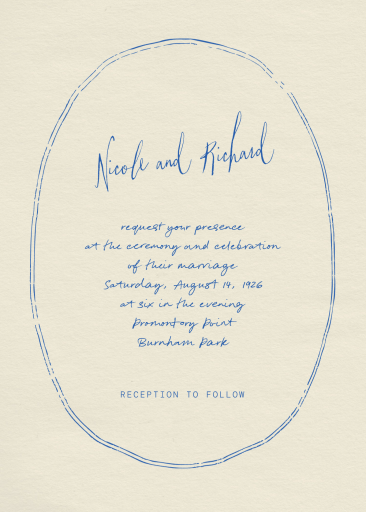 Nicole and Richard
request your presence
at the ceremony and celebration
of their marriage
Saturday, August 14, 1926
at six in the evening
Promontory Point
Burnham Park
RECEPTION TO FOLLOW